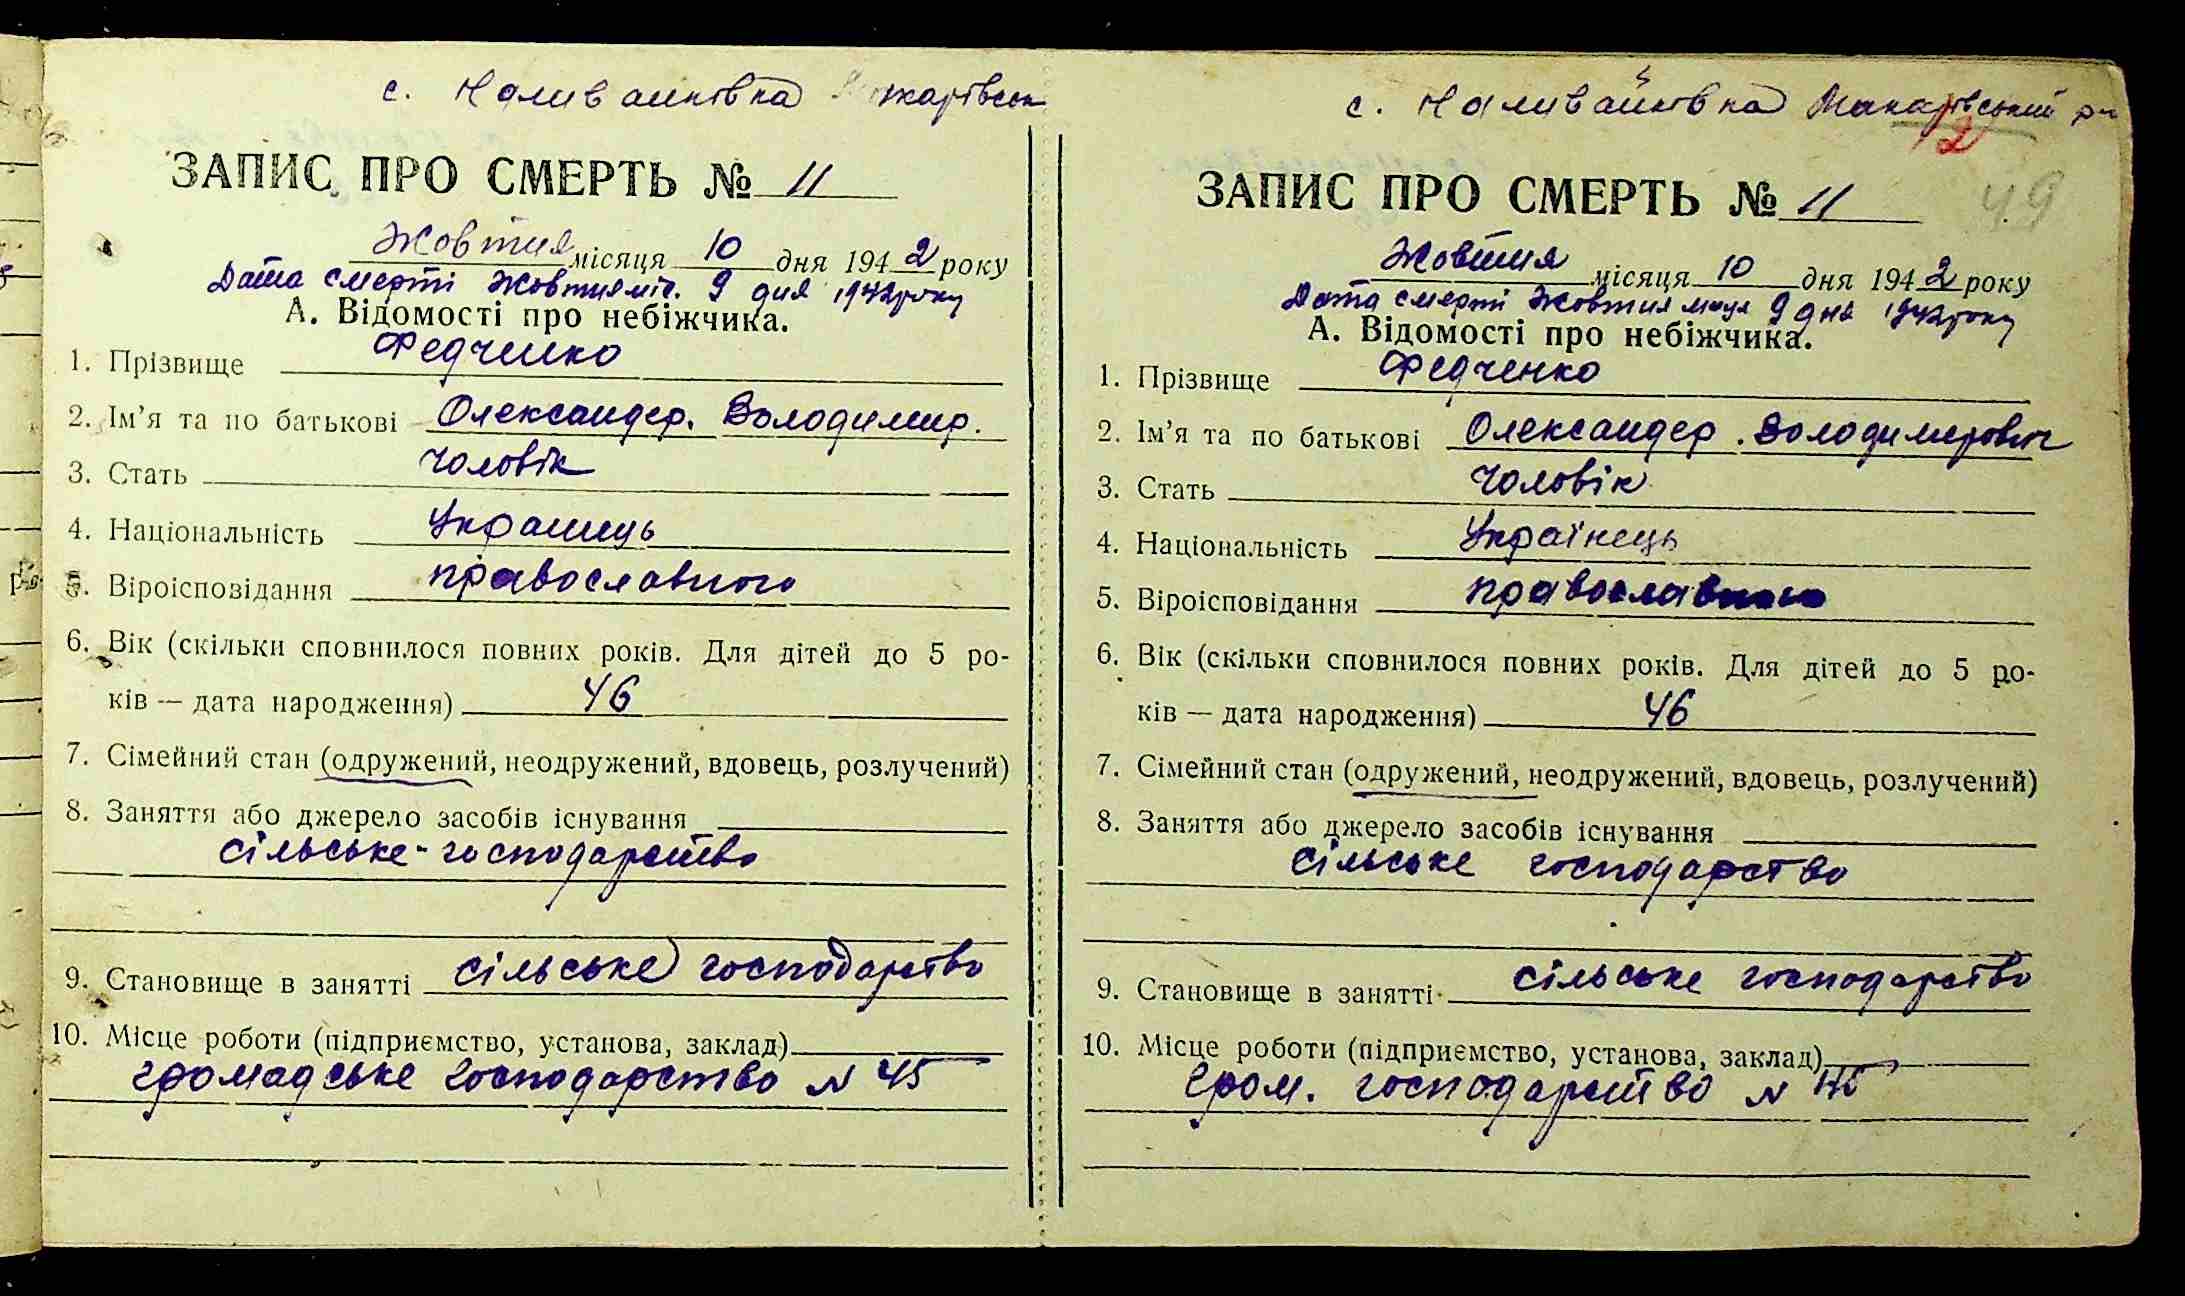 с. Наливайківка
ЗАПИС ПРО СМЕРТЬ № 11
Жовтня місяця 10 дня 1942 року
Дата смерті Жовтня міс. 9 дня 1942 року
А. Відомості про небіжчика.
1. Прізвище Федченко
2. Ім'я та по батькові Олександер. Володимир.
3. Стать чоловік
4. Національність Українець
5. Віроісповідання православного
6. Вік (скільки сповнилося повних років. Для дітей до 5 ро-
ків — дата народження) 46
7. Сімейний стан (одружений, неодружений, вдовець, розлучений)
8. Заняття або джерело засобів існування
сільське-господарство
9. Становище в занятті сільське господарство
10. Місце роботи (підприємство, установа, заклад)
громадське господарство N 45
с. Наливайківка Макарівський р-н
2
49
ЗАПИС ПРО СМЕРТЬ № 11
Жовтня місяця 10 дня 1942 року
Дата смерті Жовтня 9 дня 1942 року
А. Відомості про небіжчика.
1. Прізвище Федченко
2. Ім'я та по батькові Олександер. Володимирович
3. Стать чоловік
4. Національність Українець
5. Віроісповідання православного
6. Вік (скільки сповнилося повних років. Для дітей до 5 ро-
ків — дата народження) 46
7. Сімейний стан (одружений, неодружений, вдовець, розлучений)
8. Заняття або джерело засобів існування
сільське господарство
9. Становище в занятті сільське господарство
10. Місце роботи (підприємство, установа, заклад)
Гром. господарство N